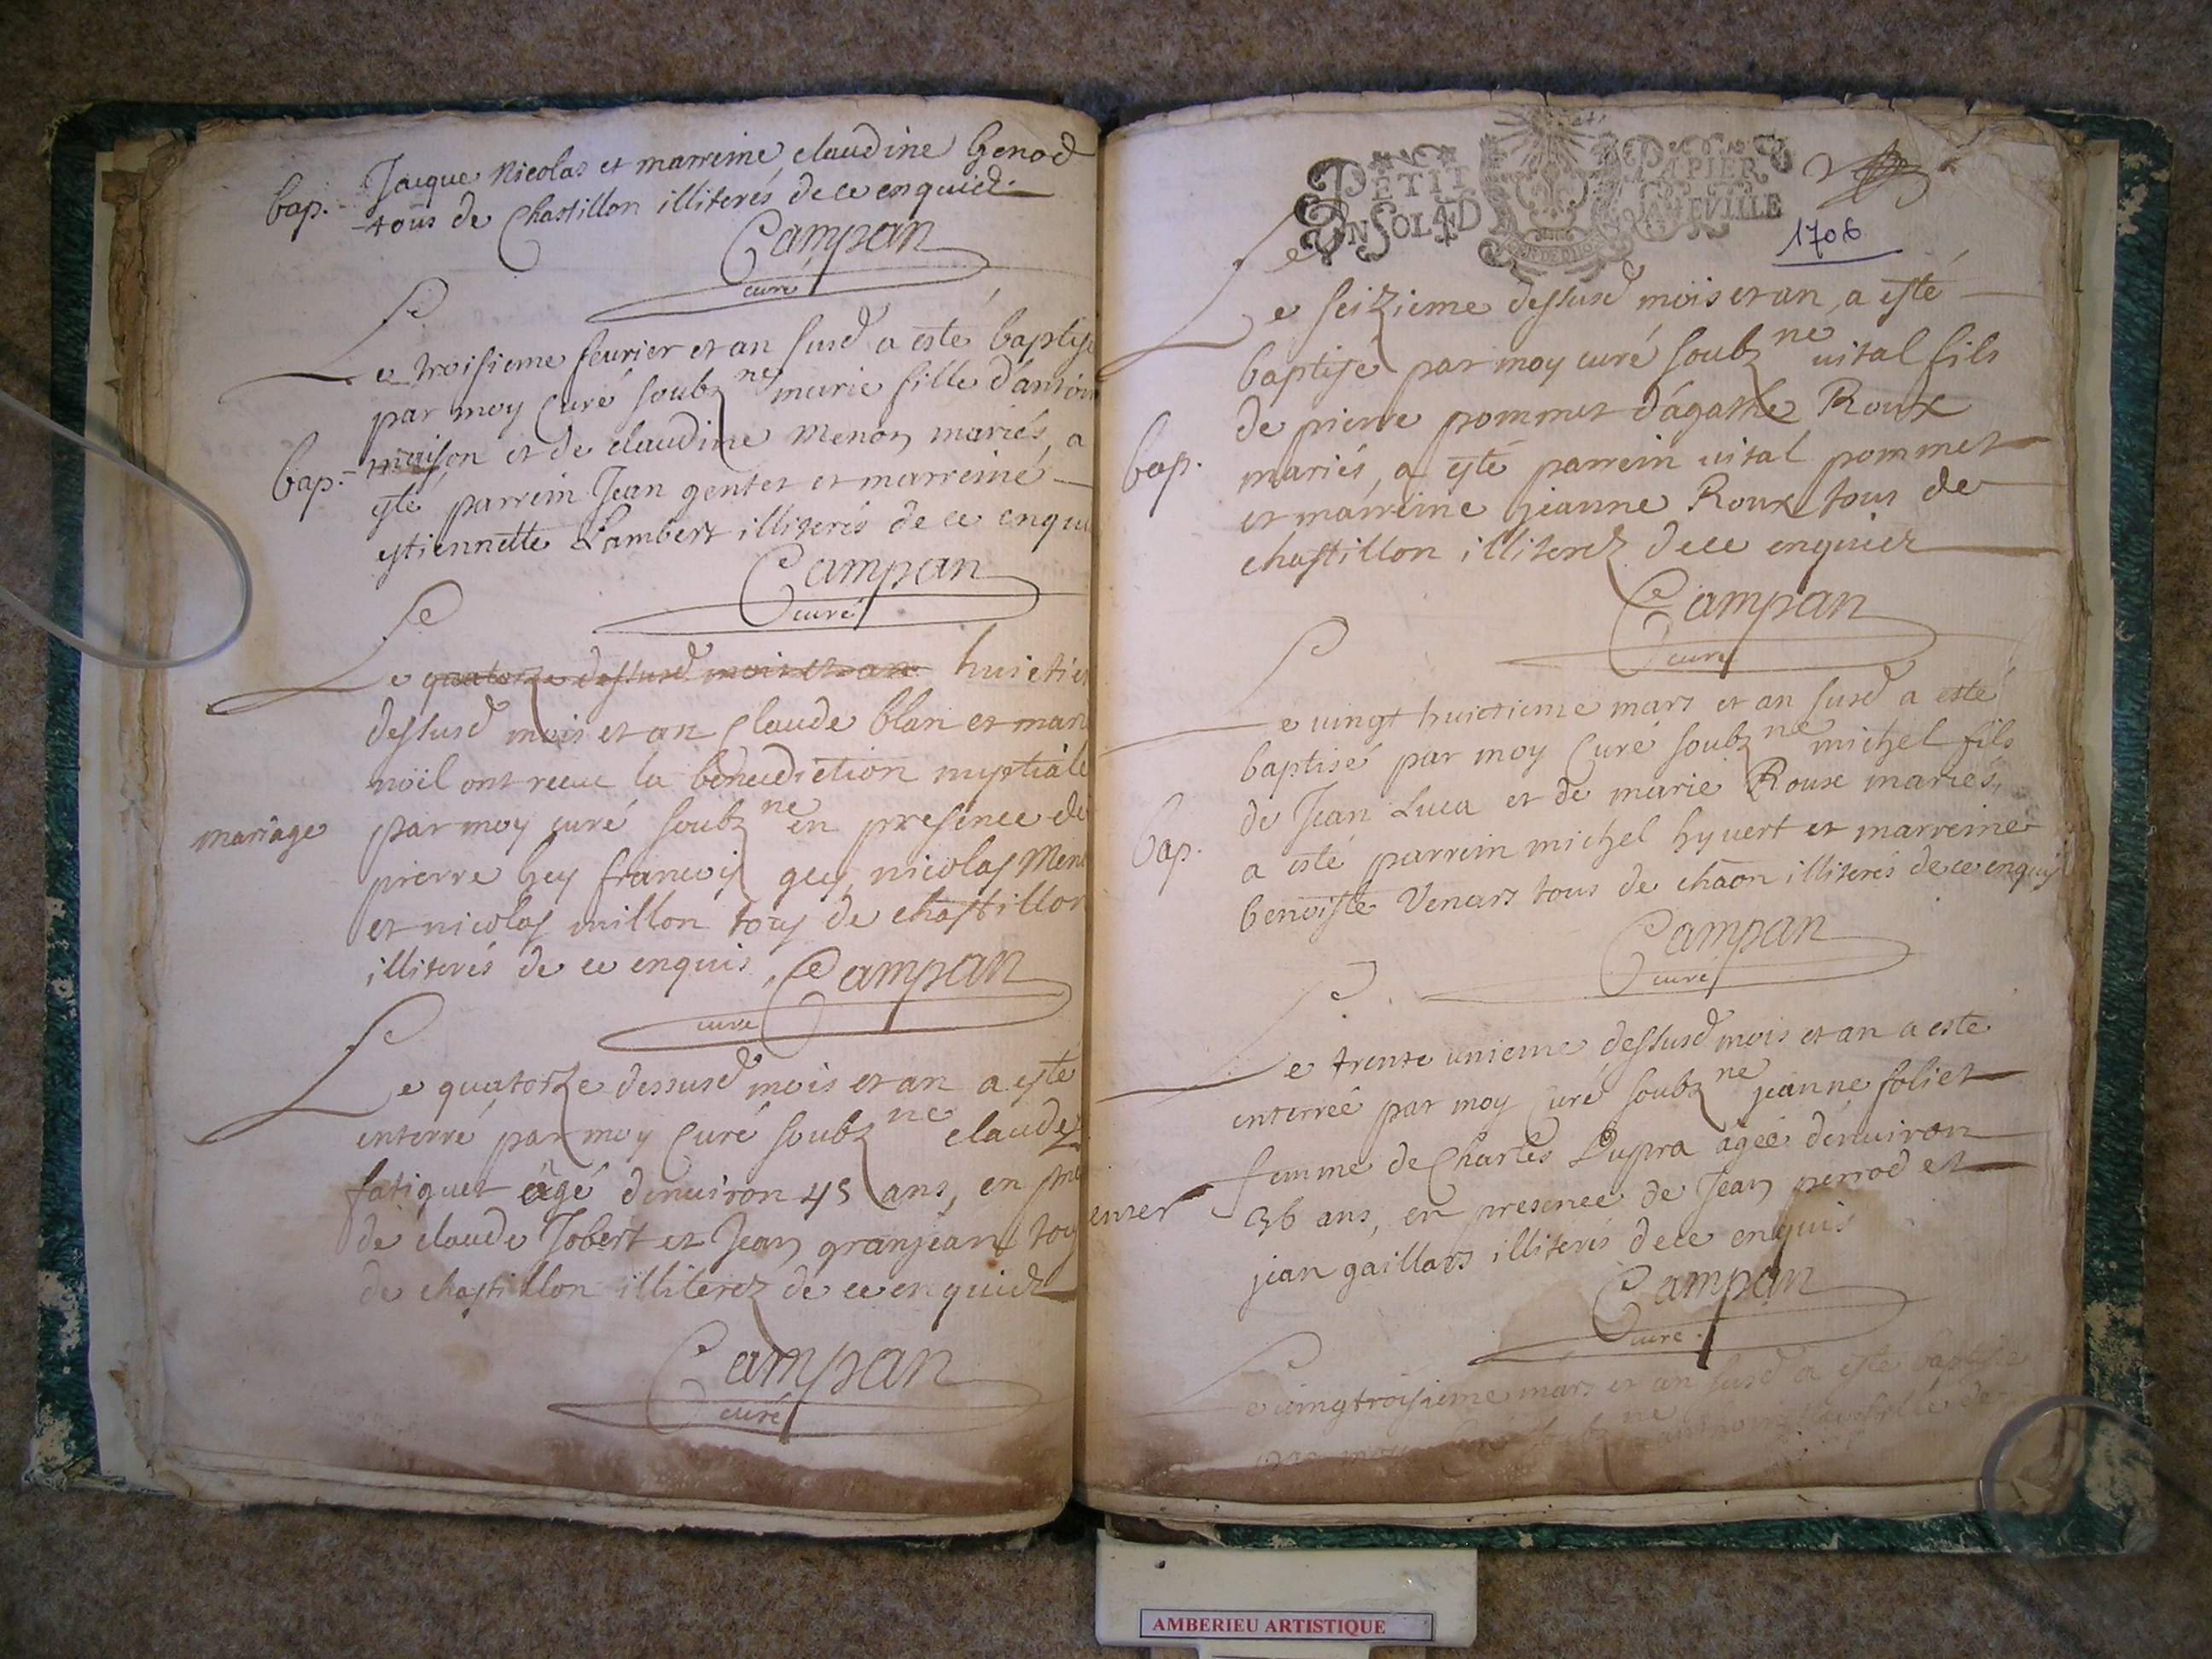 Jacque Nicolas et marreine claudine Genod
bap. tous de Chastillon illiterés de ce enquiez.
Campan
curé
Le troisieme feurier et an susd a esté baptise
par moy Curé soubz ne marie fille d'antoin
bap. maison et de claudine Menon mariés, a
esté parrein Jean gentet et marreine
estiennette Lambert illiterés de ce enqui
Campan
curé
Le quatorze dessusd mois et an huictie
dessusd mois et an Claude blan et mar
noël ont receu la benediction nuptiale
mariage par moy curé soubz ne en presence de
pierre hey francois gey, nicolas Men
et nicolas millon tous de chastillon
illiterés de ce enquis. Campan
curé
Le quatorze dessusd mois et an a esté
enterré par moy Curé soubz ne claude
fatiguet âgé denuiron 45 ans, en
de claude Jobert et Jean granjean tous
de chastillon illiterez de ce enquiez
Campan
curé
PETIT PAPIER
UN SOL 4 D LA FEUILLE
1706
Le seizieme dessusd mois et an, a esté
baptisé par moy curé soubz ne vital fils
de pierre pommet d'agathe Roux
bap. mariés, a esté parrein uital pommet
et marreine jeanne Roux tous de
chastillon illiterez de ce enquiez
Campan
curé
Le uingt huictieme mars et an susd a esté
baptisé par moy Curé soubz ne michel fils
de Jean Luca et de marie Roux mariés,
bap. a esté parrein michel hyuert et marreine
benoiste Venars tous de chaôn illiterés de ce enquis
Campan
curé
Le trente unieme dessusd mois et an a esté
enterrée par moy Curé soubz ne jeanne foliet
femme de Charles Dupra âgée denuiron
enter 36 ans, en presence de Jean perrod et
jean gaillars illiterés de ce enquis
Campan
curé.
Le uingtroisieme mars et an susd a esté baptisé
par moy soubz ne fille de
AMBERIEU ARTISTIQUE